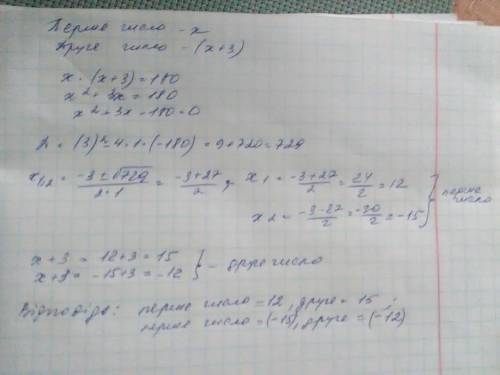 Перше число - x
Друге число - (x+3)
x · (x+3) = 180
x² + 3x = 180
x² + 3x - 180 = 0
D = (3)² - 4·1·(-180) = 9 + 720 = 729
x₁,₂ = (-3 ± √729)/(2·1) = (-3+27)/2, x₁ = (-3+27)/2 = 24/2 = 12
x₂ = (-3-27)/2 = -30/2 = -15 } перше число
x + 3 = 12 + 3 = 15
x + 3 = -15 + 3 = -12 } - друге число
Відповідь: перше число = 12, друге = 15;
перше число = (-15), друге = (-12)